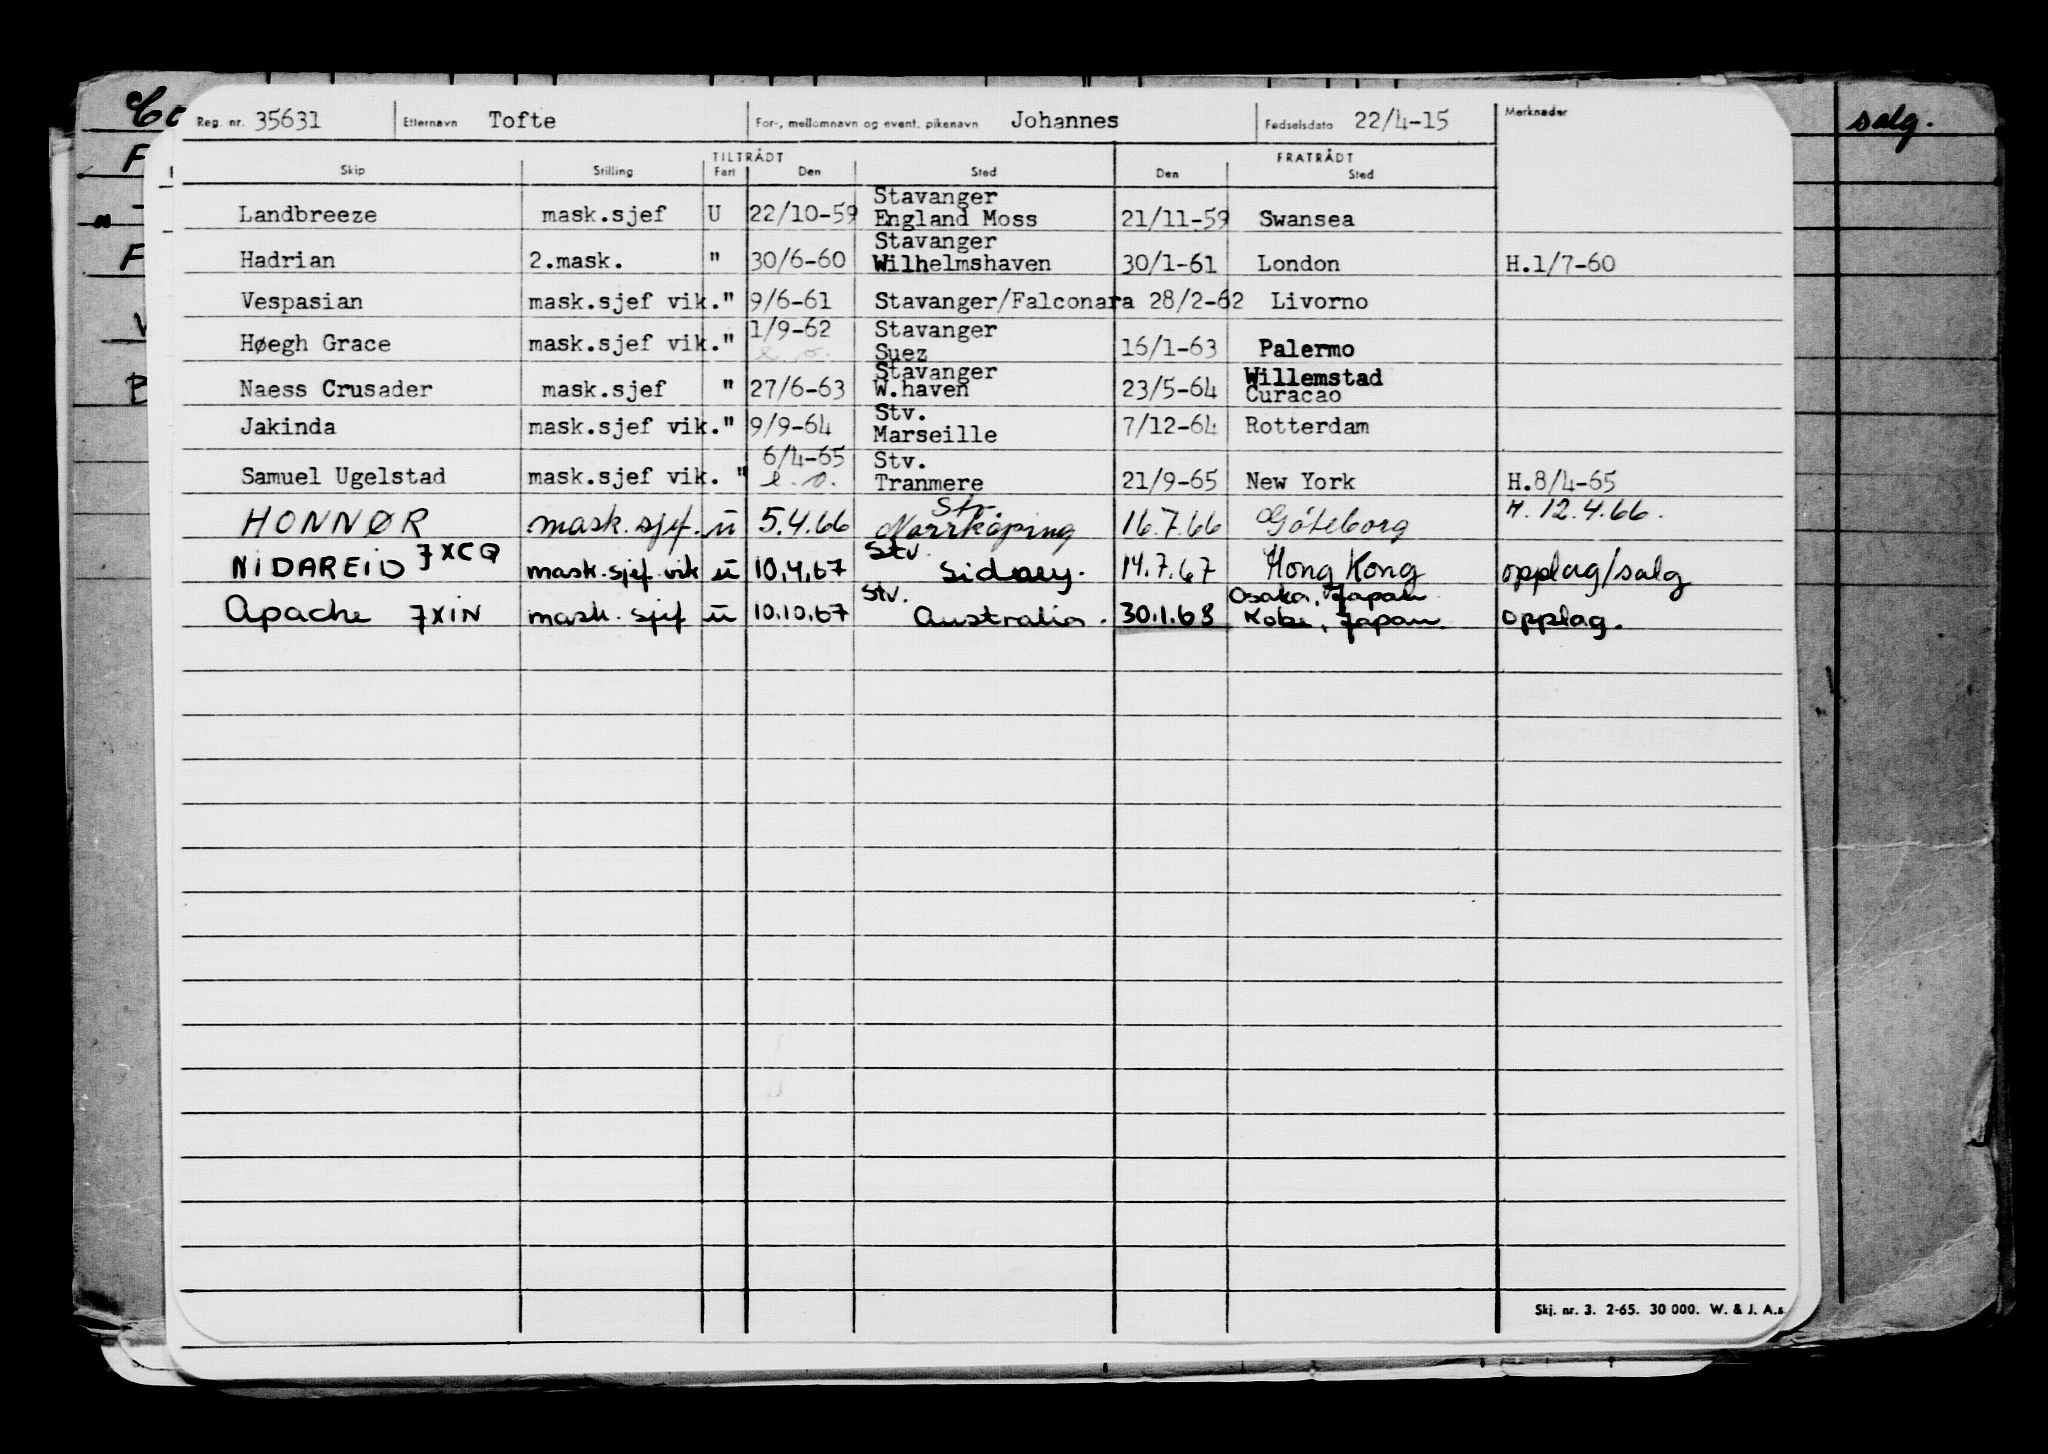 Reg. nr. 35631 Etternavn Tofte For-, mellomnavn og event. pikenavn Johannes Fødselsdato 22/4-15 Merknader salg.
TILTRÅDT FRATRÅDT
Skip Stilling Fart Den Sted Den Sted
Stavanger
Landbreeze mask.sjef U 22/10-59 England Moss 21/11-59 Swansea
Stavanger
Hadrian 2.mask. " 30/6-60 Wilhelmshaven 30/1-61 London H.1/7-60
Vespasian mask.sjef vik." 9/6-61 Stavanger/Falconara 28/2-62 Livorno
1/9-62 Stavanger
Høegh Grace mask.sjef vik." e.o. Suez 16/1-63 Palermo
Stavanger Willemstad
Naess Crusader mask.sjef " 27/6-63 W.haven 23/5-64 Curacao
Stv.
Jakinda mask.sjef vik." 9/9-64 Marseille 7/12-64 Rotterdam
6/4-65 Stv.
Samuel Ugelstad mask.sjef vik. " e.o. Tranmere 21/9-65 New York H.8/4-65
Stv.
HONNØR mask.sjef. u 5.4.66 Norrköping 16.7.66 Göteborg H. 12.4.66.
Stv.
NIDAREID 7XCQ mask.sjef vik u 10.4.67 Sidney. 14.7.67 Hong Kong opplag/salg
Stv. Osaka, Japan
Apache 7XIN mask. sjef u 10.10.67 Australia. 30.1.68 Kobe, Japan. opplag.
Skj. nr. 3. 2-65. 30 000. W. & J. A.s